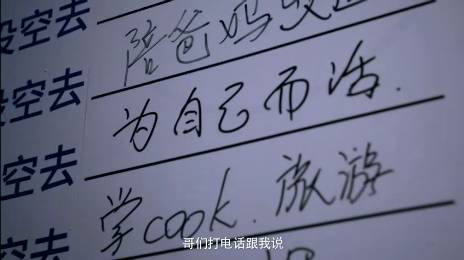 没空去 陪爸妈
没空去 为自己而活.
没空去 学cook.旅游
空去
哥们打电话跟我说